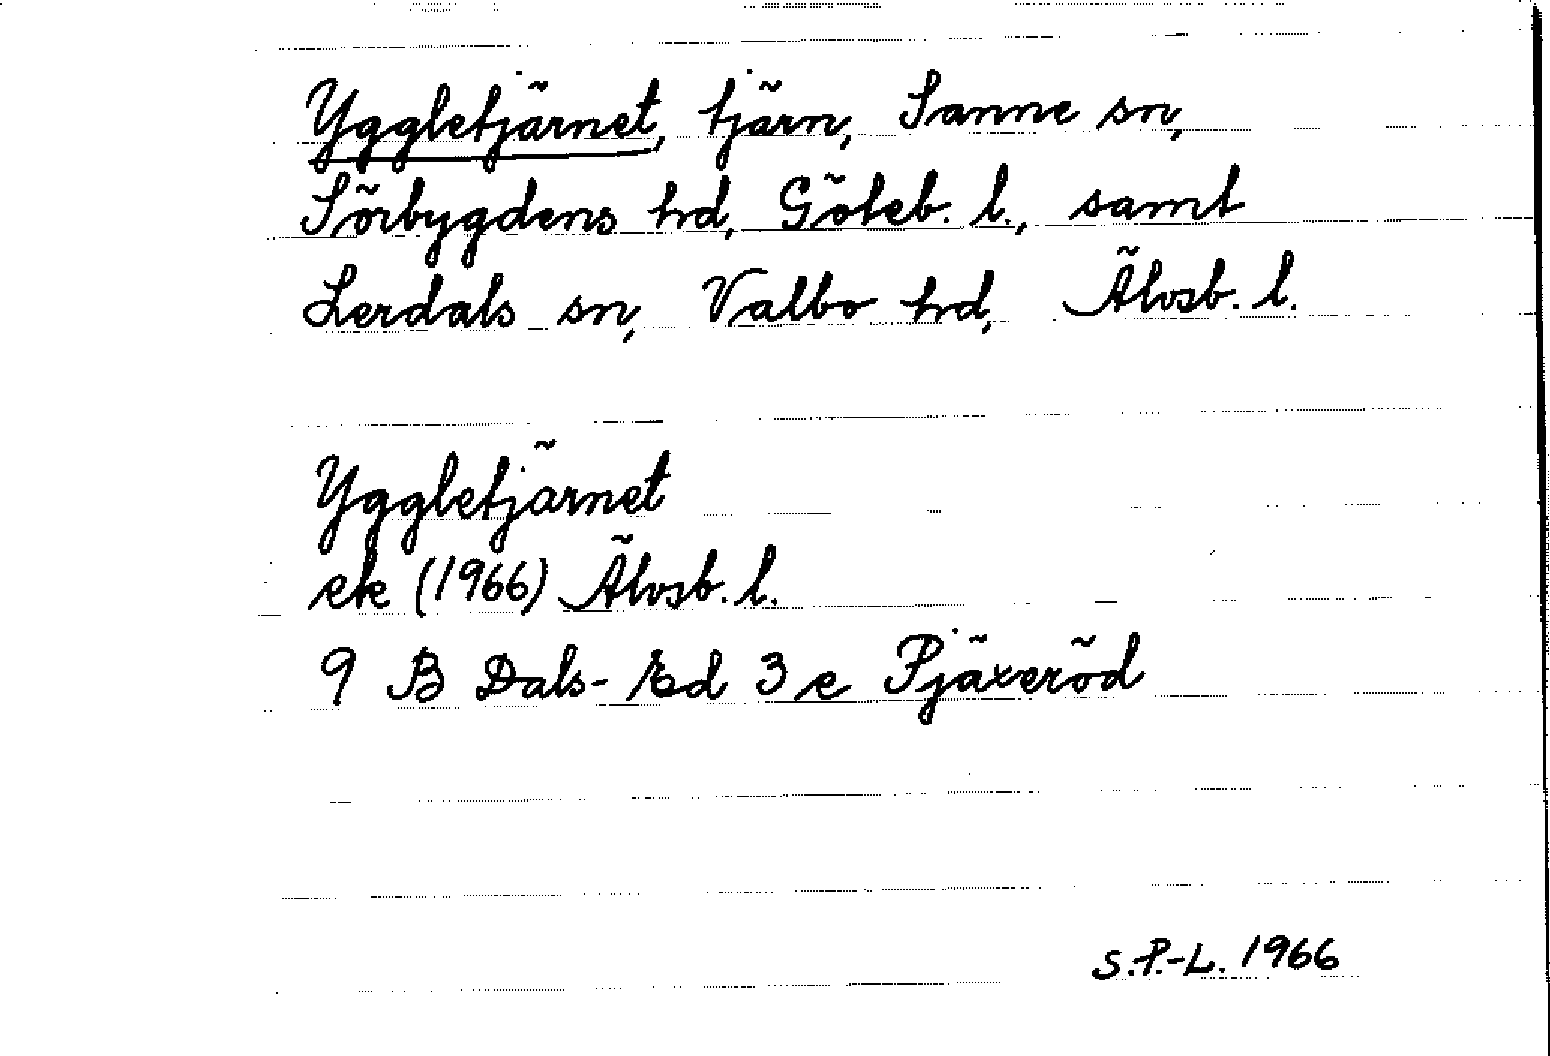 Yggletjärnet, tjärn, Sanne sn,
Sörbygdens hd, Göteb. l., samt
Lerdals sn, Valbo hd, Älvsb. l.
Yggletjärnet
ek (1966) Älvsb. l.
9 B Dals-Ed 3 e Pjäxeröd
S.P.-L. 1966